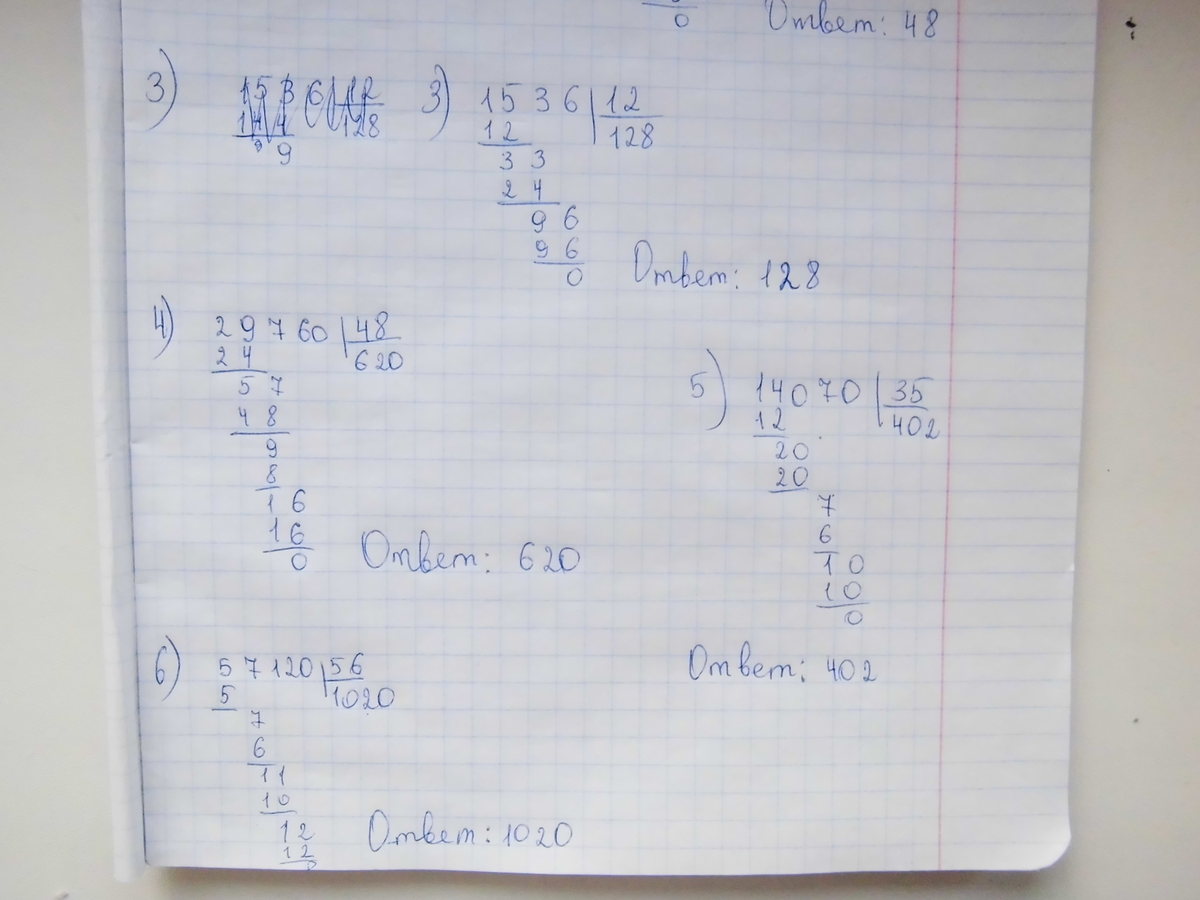 0 Ответ: 48
3) 3) 1536 | 12
12 128
33
24
96
96
0 Ответ: 128
4) 29760 | 48
24 620
57
48
9
8
16
16
0 Ответ: 620
5) 14070 | 35
12 402
20
20
7
6
10
10
0
Ответ: 402
6) 57120 | 56
5 1020
7
6
11
10
12
12
0 Ответ: 1020